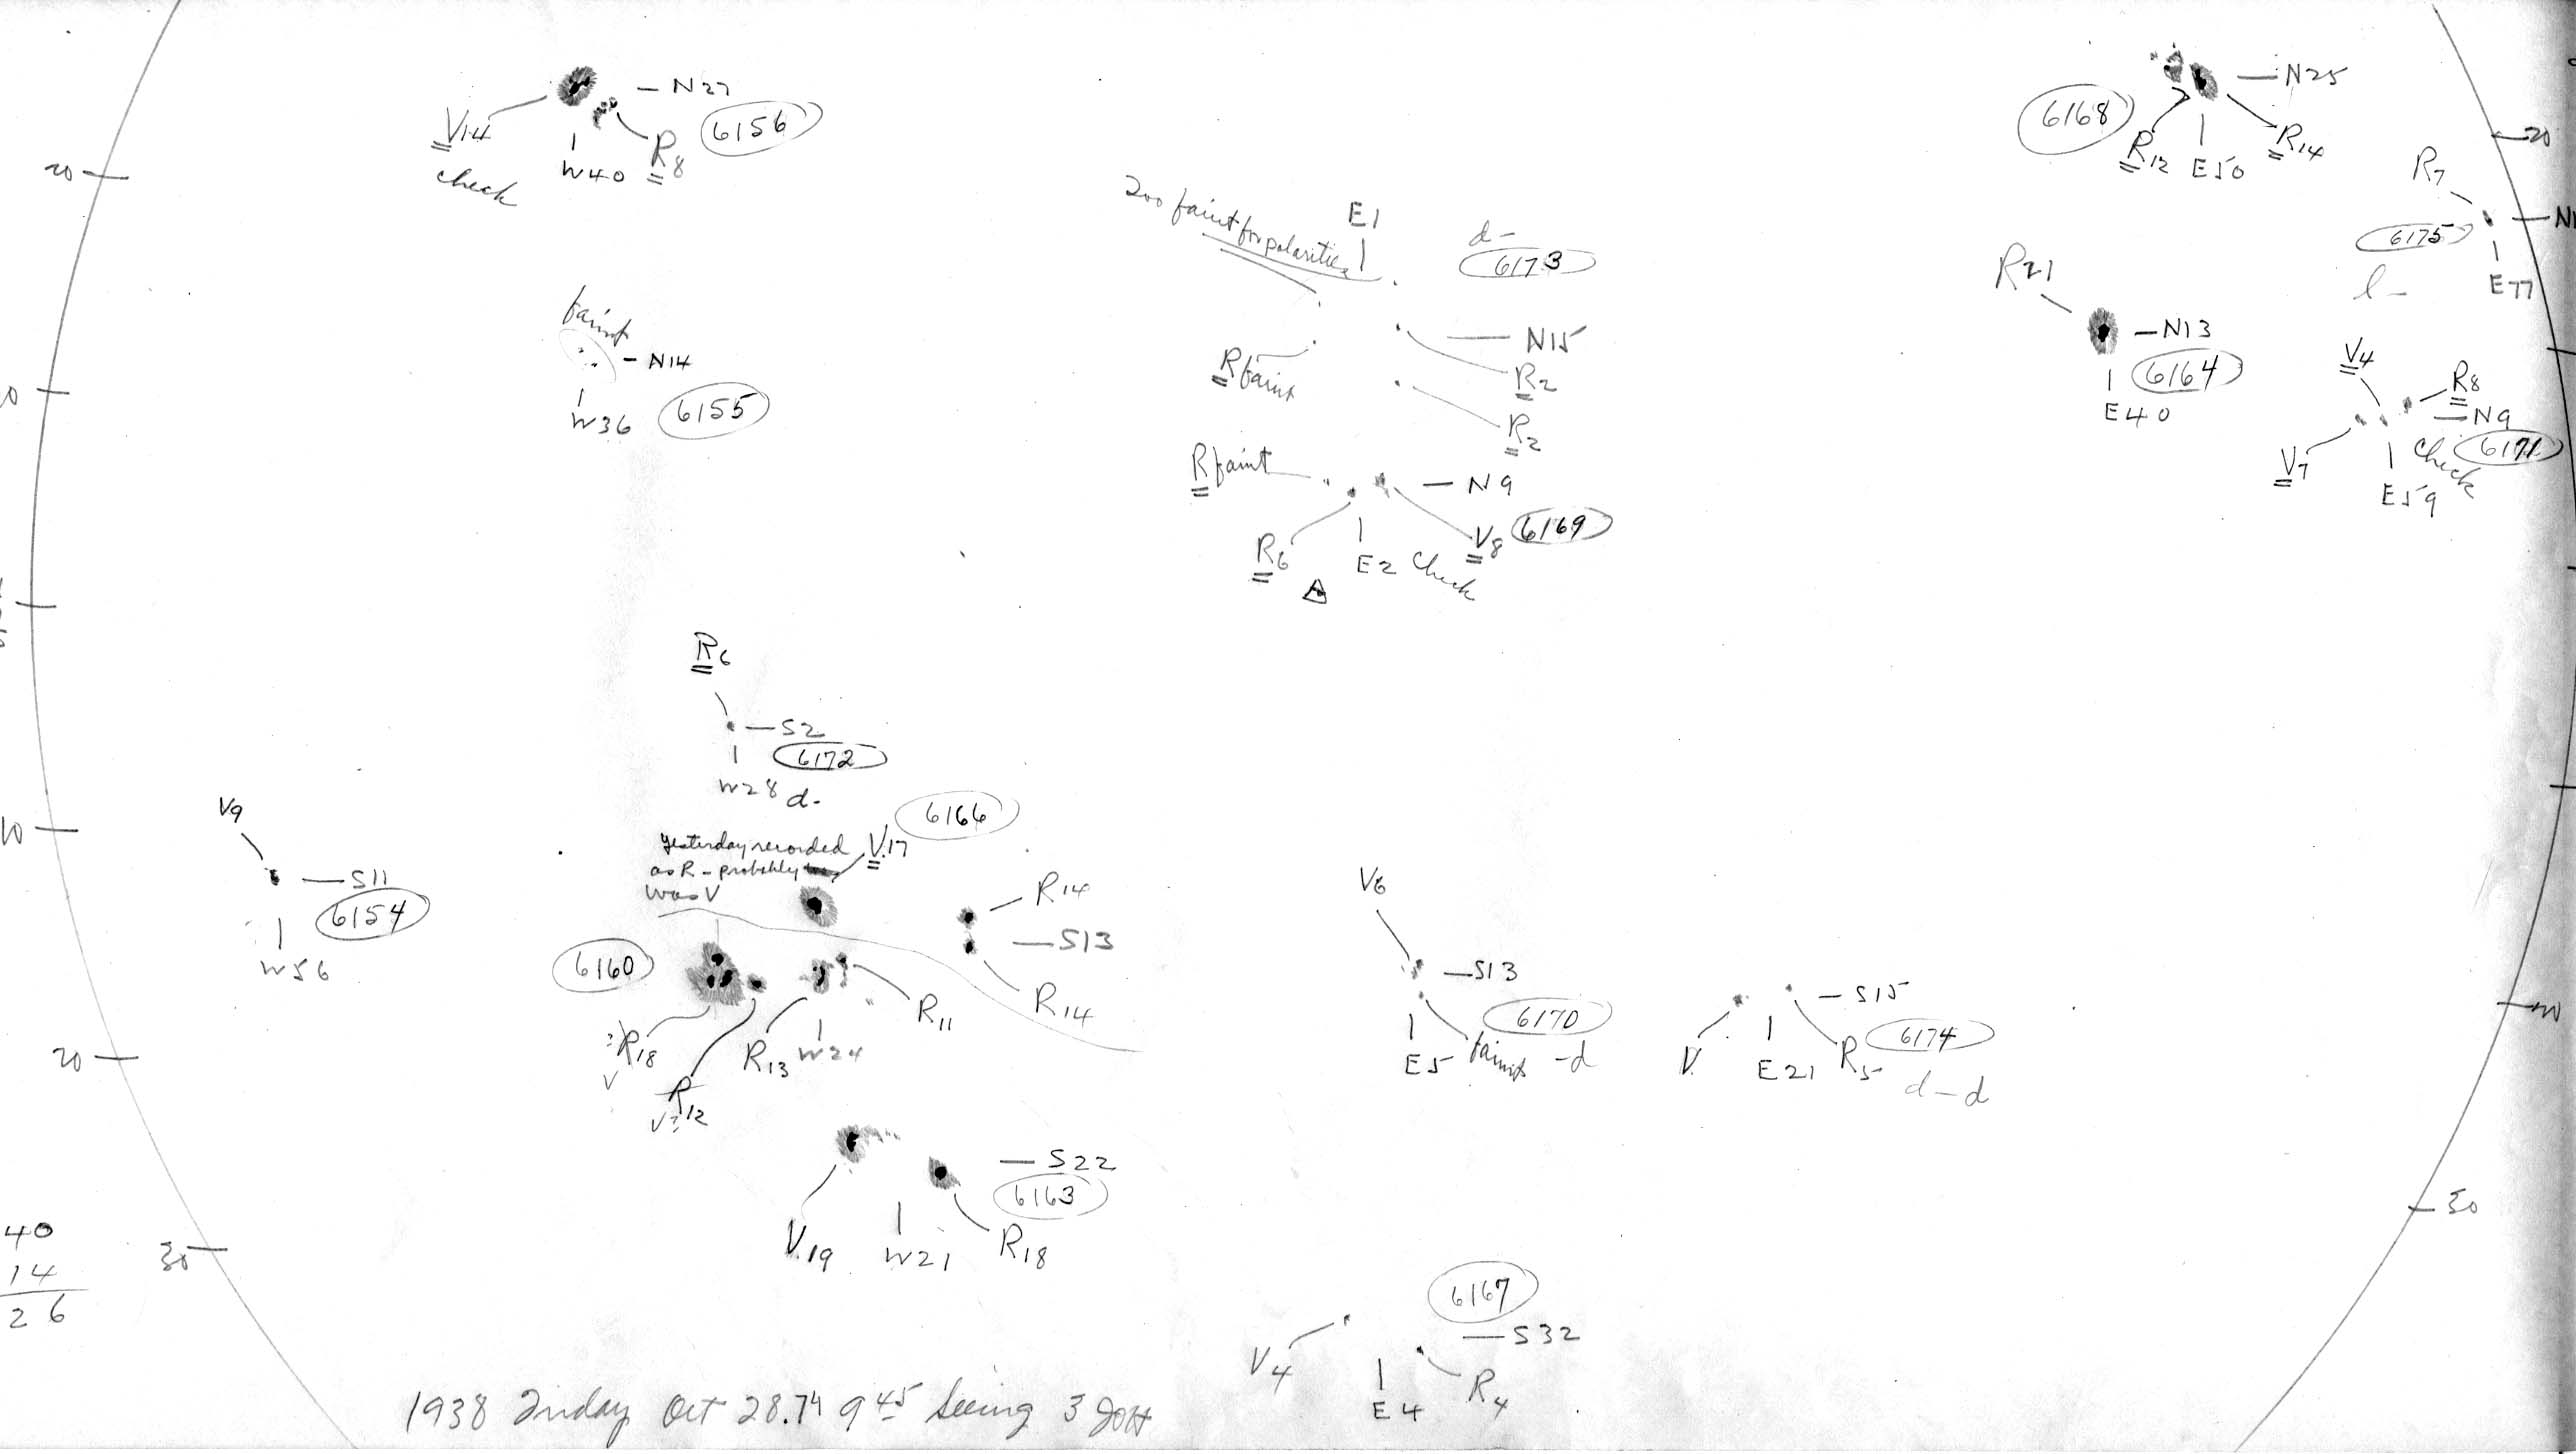 N27
V14
check
W40
R8
6156
20
faint
N14
W36
6155
Too faint for polarities
E1
d-
6173
N15
R faint
R2
R2
R faint
N9
R6
E2
check
V8
6169
N25
6168
R12
E50
R14
20
R7
6175
l-
E77
R21
N13
6164
E40
V4
R8
N9
6171
V7
check
E59
R6
S2
6172
W28
d-
V9
10
S11
6154
W56
6166
Yesterday recorded
as R - probably
was V
V17
R14
S13
R14
6160
R18
V
R12
V?
R13
W24
R11
20
V6
S13
6170
E5
faint
-d
S15
V
E21
R5
6174
d-d
20
S22
6163
V19
W21
R18
30
30
40
14
26
6167
S32
V4
E4
R4
1938 Friday Oct 28.74 9 45 Seeing 3